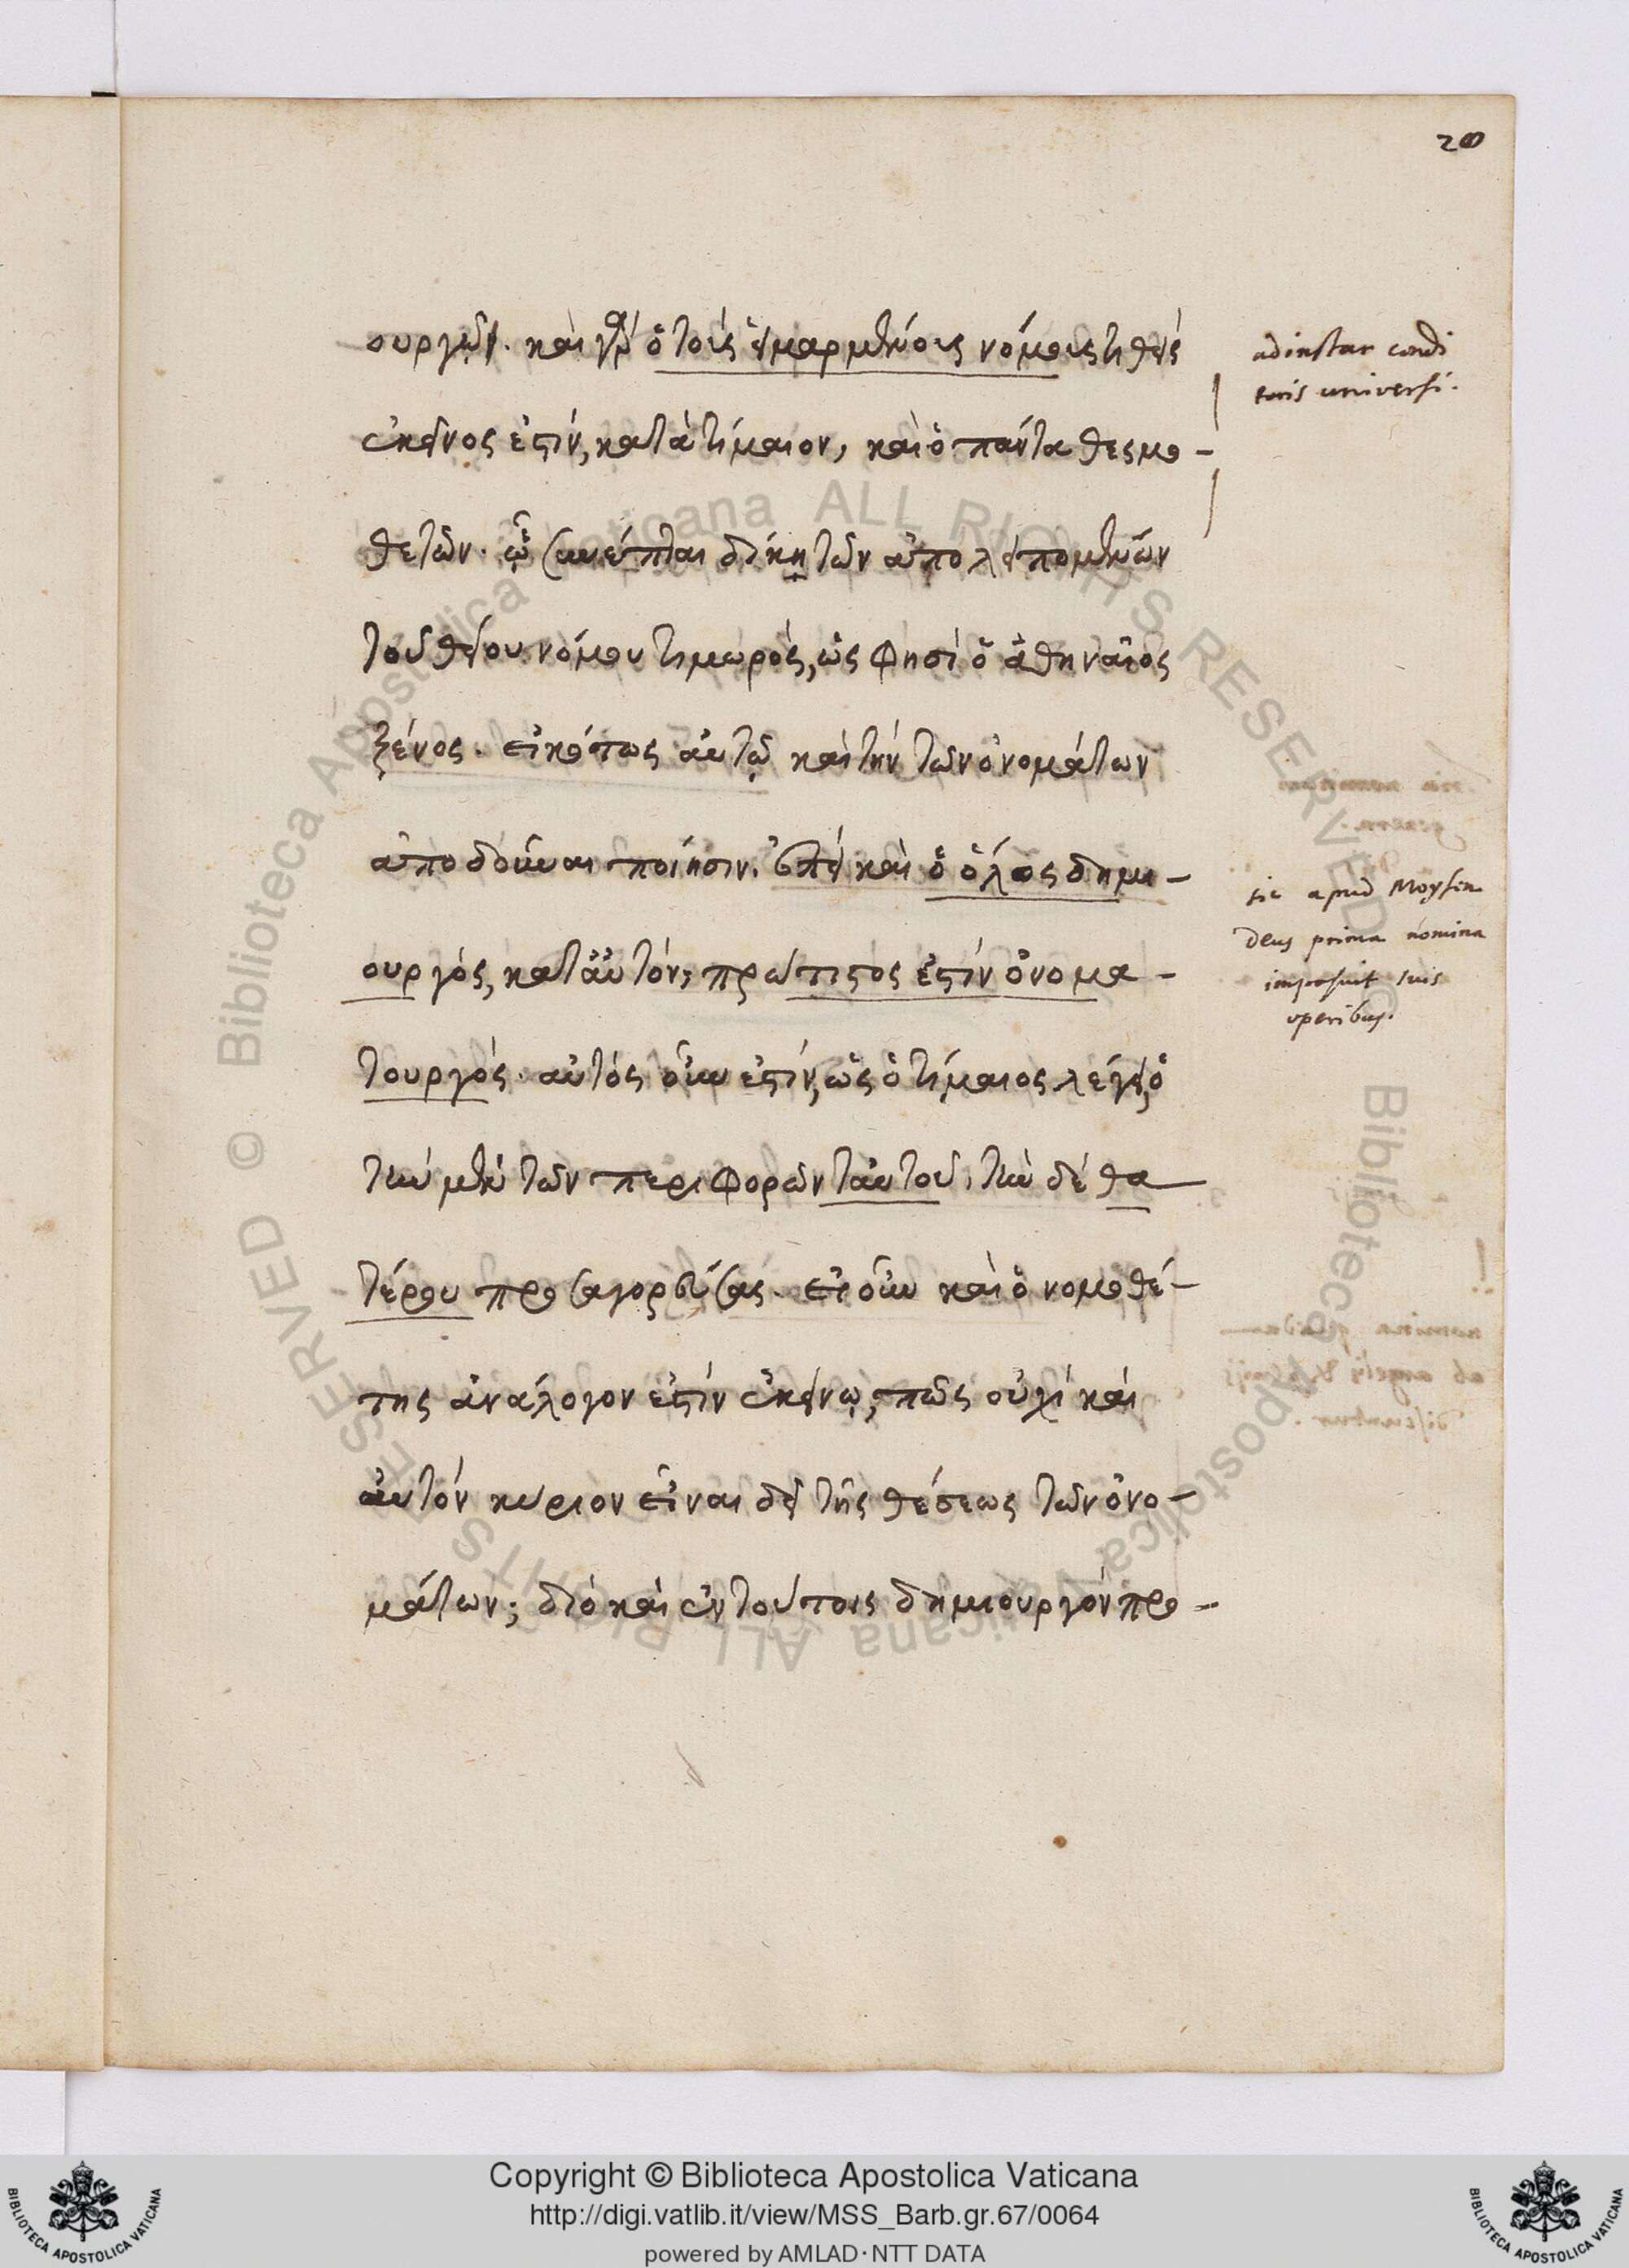 20
ουργῷ. καὶ γὰρ ὁ τοῖς εἱμαρμένοις νόμοις τιθεὶς
ἐκεῖνος ἐστὶν, κατὰ τίμαιον, καὶ ὁ πάντα θεσμο-
θετῶν. ᾧ συνέπεται δίκη τῶν ἀπολειπομένων
τοῦ θείου νόμου τιμωρὸς, ὥς φησι ὁ ἀθηναῖος
ξένος. εἰκότως αὐτῷ καὶ τὴν τῶν ὀνομάτων
ἀποδοῦναι ποίησιν. ἐπεὶ καὶ ὁ ὅλος δημι-
ουργὸς, κατ' αὐτὸν, πρώτιστος ἐστὶν ὀνομα-
τουργὸς. αὐτός οὖν ἐστίν, ὡς ὁ τίμαιος λέγει, ὁ
τὴν μὲν τῶν περιφορῶν ταὐτοῦ, τὴν δὲ θα
τέρου προσαγορεύσας. εἰ οὖν καὶ ὁ νομοθέ-
της ἀνάλογον ἐστὶν ἐκείνῳ, πῶς οὐχὶ καὶ
αὐτὸν κύριον εἶναι δεῖ τῆς θέσεως τῶν ὀνο-
μάτων; διὸ καὶ ἐν τούτοις δημιουργὸν προ-
ad instar condi
toris universi.
sic apud Moysen
Deus prima nomina
imposuit suis
operibus.
Copyright © Biblioteca Apostolica Vaticana
http://digi.vatlib.it/view/MSS_Barb.gr.67/0064
powered by AMLAD·NTT DATA
BIBLIOTECA APOSTOLICA VATICANA
BIBLIOTECA APOSTOLICA VATICANA
© Biblioteca Apostolica Vaticana ALL RIGHTS RESERVED
© Biblioteca Apostolica Vaticana ALL RIGHTS RESERVED